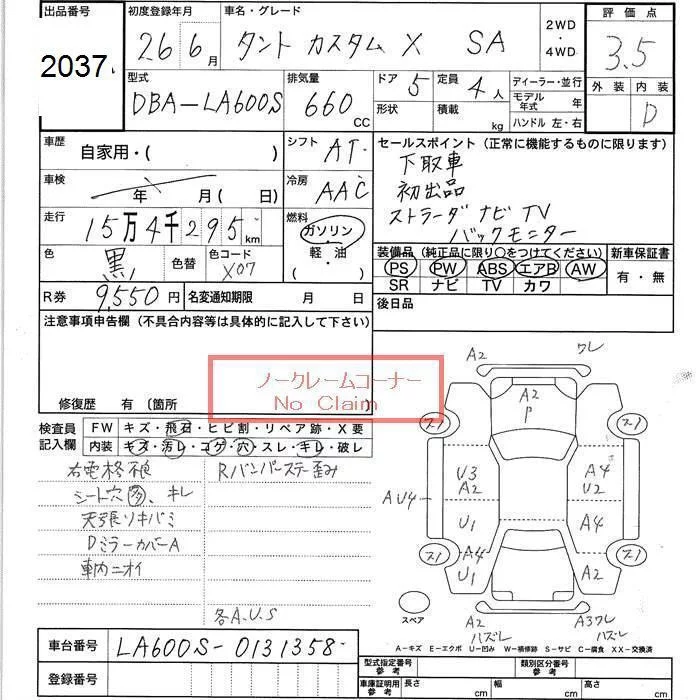 出品番号 初度登録年月 車名・グレード 2WD・4WD 評価点
2037 26 6月 タント カスタム X SA 3.5
型式 排気量 ドア 5 定員 4人 ディーラー・並行 外装 内装
DBA-LA600S 660cc 形状 積載 kg モデル年式 年 D
ハンドル 左・右
車歴 自家用・( ) シフト AT セールスポイント (正常に機能するものに限ります)
車検 年 月(日) 冷房 AAC 下取車
初出品
走行 15万4千295km 燃料 ガソリン・軽油 ストラーダ ナビ TV
バックモニター
色 黒 色替 色コード X07 装備品 (純正品に限り○をつけてください) 新車保証書
PS PW ABS エアB AW 有・無
SR ナビ TV カワ
R券 9,550円 名変通知期限 月 日 後日品
注意事項申告欄 (不具合内容等は具体的に記入して下さい)
ノークレームコーナー
No Claim
修復歴 有 〔箇所
検査員記入欄 FW キズ・飛石・ヒビ割・リペア跡・X要
内装 キズ・汚レ・コゲ・穴・スレ・キレ・破レ
右電格不良 Rバンパーステー歪み
シート穴多、キレ
天張リキバミ
DミラーカバーA
車内ニオイ
各A.U.S
A2 ワレ
A2
P
ス1 ス1
U3 A4
A2 U2
AU4
U1 A4
ス1 A4 ス1
U1 A2
スペア
A2 A3ワレ
ハズレ ハズレ
A-キズ E-エクボ U-凹み W-補修跡 S-サビ C-腐食 XX-交換済
車台番号 LA600S-0131358
登録番号
型式指定番号参考 類別区分番号参考
車庫証明用参考 長さ cm 幅 cm 高さ cm